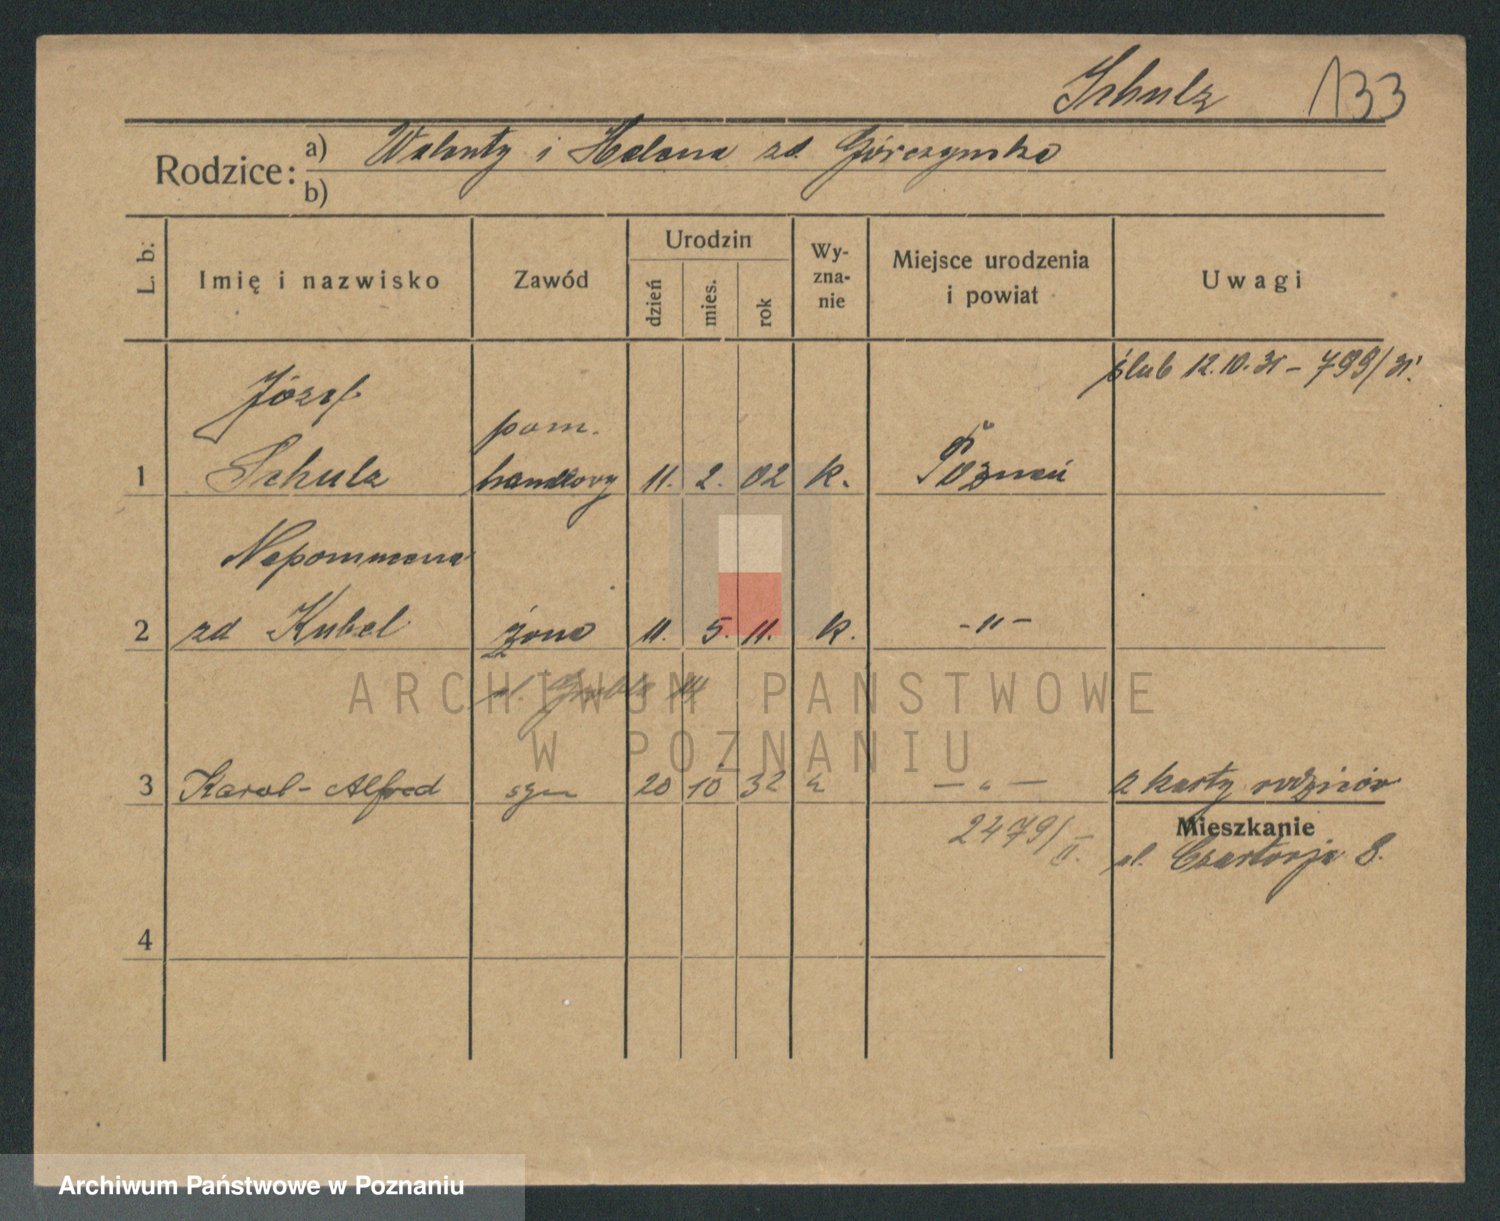 Schulz 133
Rodzice: a) Walenty i Helena zd. Górczynska
b)
L. b: Imię i nazwisko Zawód Urodzin dzień mies. rok Wy-zna-nie Miejsce urodzenia i powiat Uwagi
ślub 12.10.31 - 799/31.
Józef pom.
1 Schulz handlowy 11. 2. 02 k. Poznań
Nepomucena
2 zd Kubel żona 11. 5. 11. k. - " -
ul. 14
3 Karol-Alfred syn 20 10 32 — „ — a karty rodziców
2479/II. Mieszkanie
ul. Czartorja 8.
4
ARCHIWUM PAŃSTWOWE
W POZNANIU
Archiwum Państwowe w Poznaniu